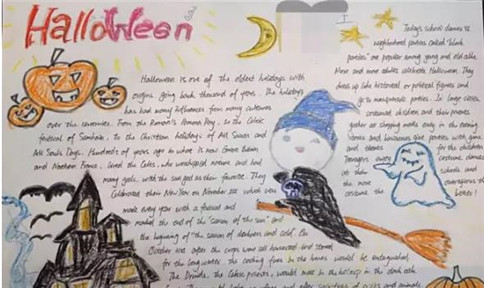 Halloween
Halloween is one of the oldest holidays with
origins going back thousands of years. The holidays
has had many influences from many cultures
over the centuries. From the Roman's Pomona Day, to the Celtic
festival of Samhain, to the Christian holidays of All Saints and
All Souls Days. Hundreds of years ago in where is now Great Britain
and Northern France, lived the Celts, who worshipped nature and had
many gods, with the sun god as their favorite. They
Celebrated their New Year on November 1st which
made every year with a festival and
marked the end of the "season of the sun" and
the beginning of "the season of darkness and cold". On
October 31st after the crops were all harvested and stored
for the long winter the cooking fires in the homes would be extinguished.
The Druids, the Celtic priests, would meet in the hilltop in the dark oak
Today's school dances and
neighborhood parties called "block
parties" are popular among young and old alike.
More and more adults celebrate Halloween. They
dress up like historical or political figures and
go to masquerade parties. In large cities,
costumed children and their parents
gather at shopping malls early in the evening.
Stores and businesses give parties with games
and treats for the children.
Teenagers costume dances
at their schools and
the more outrageous the
costume the better!